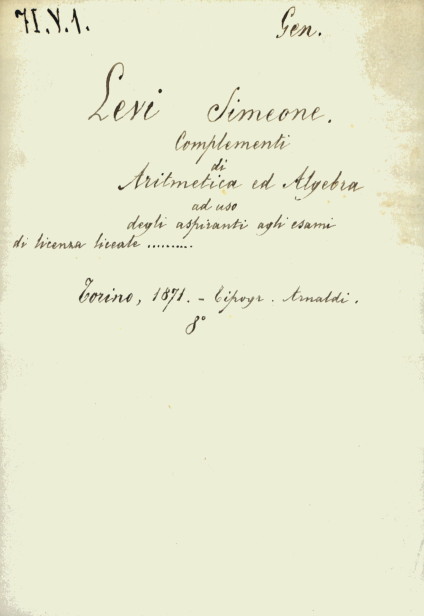 71.V.1.
Gen.
Levi Simeone.
Complementi
di
Aritmetica ed Algebra
ad uso
degli aspiranti agli esami
di licenza liceale ..........
Torino, 1871. - Tipogr. Arnaldi.
8°